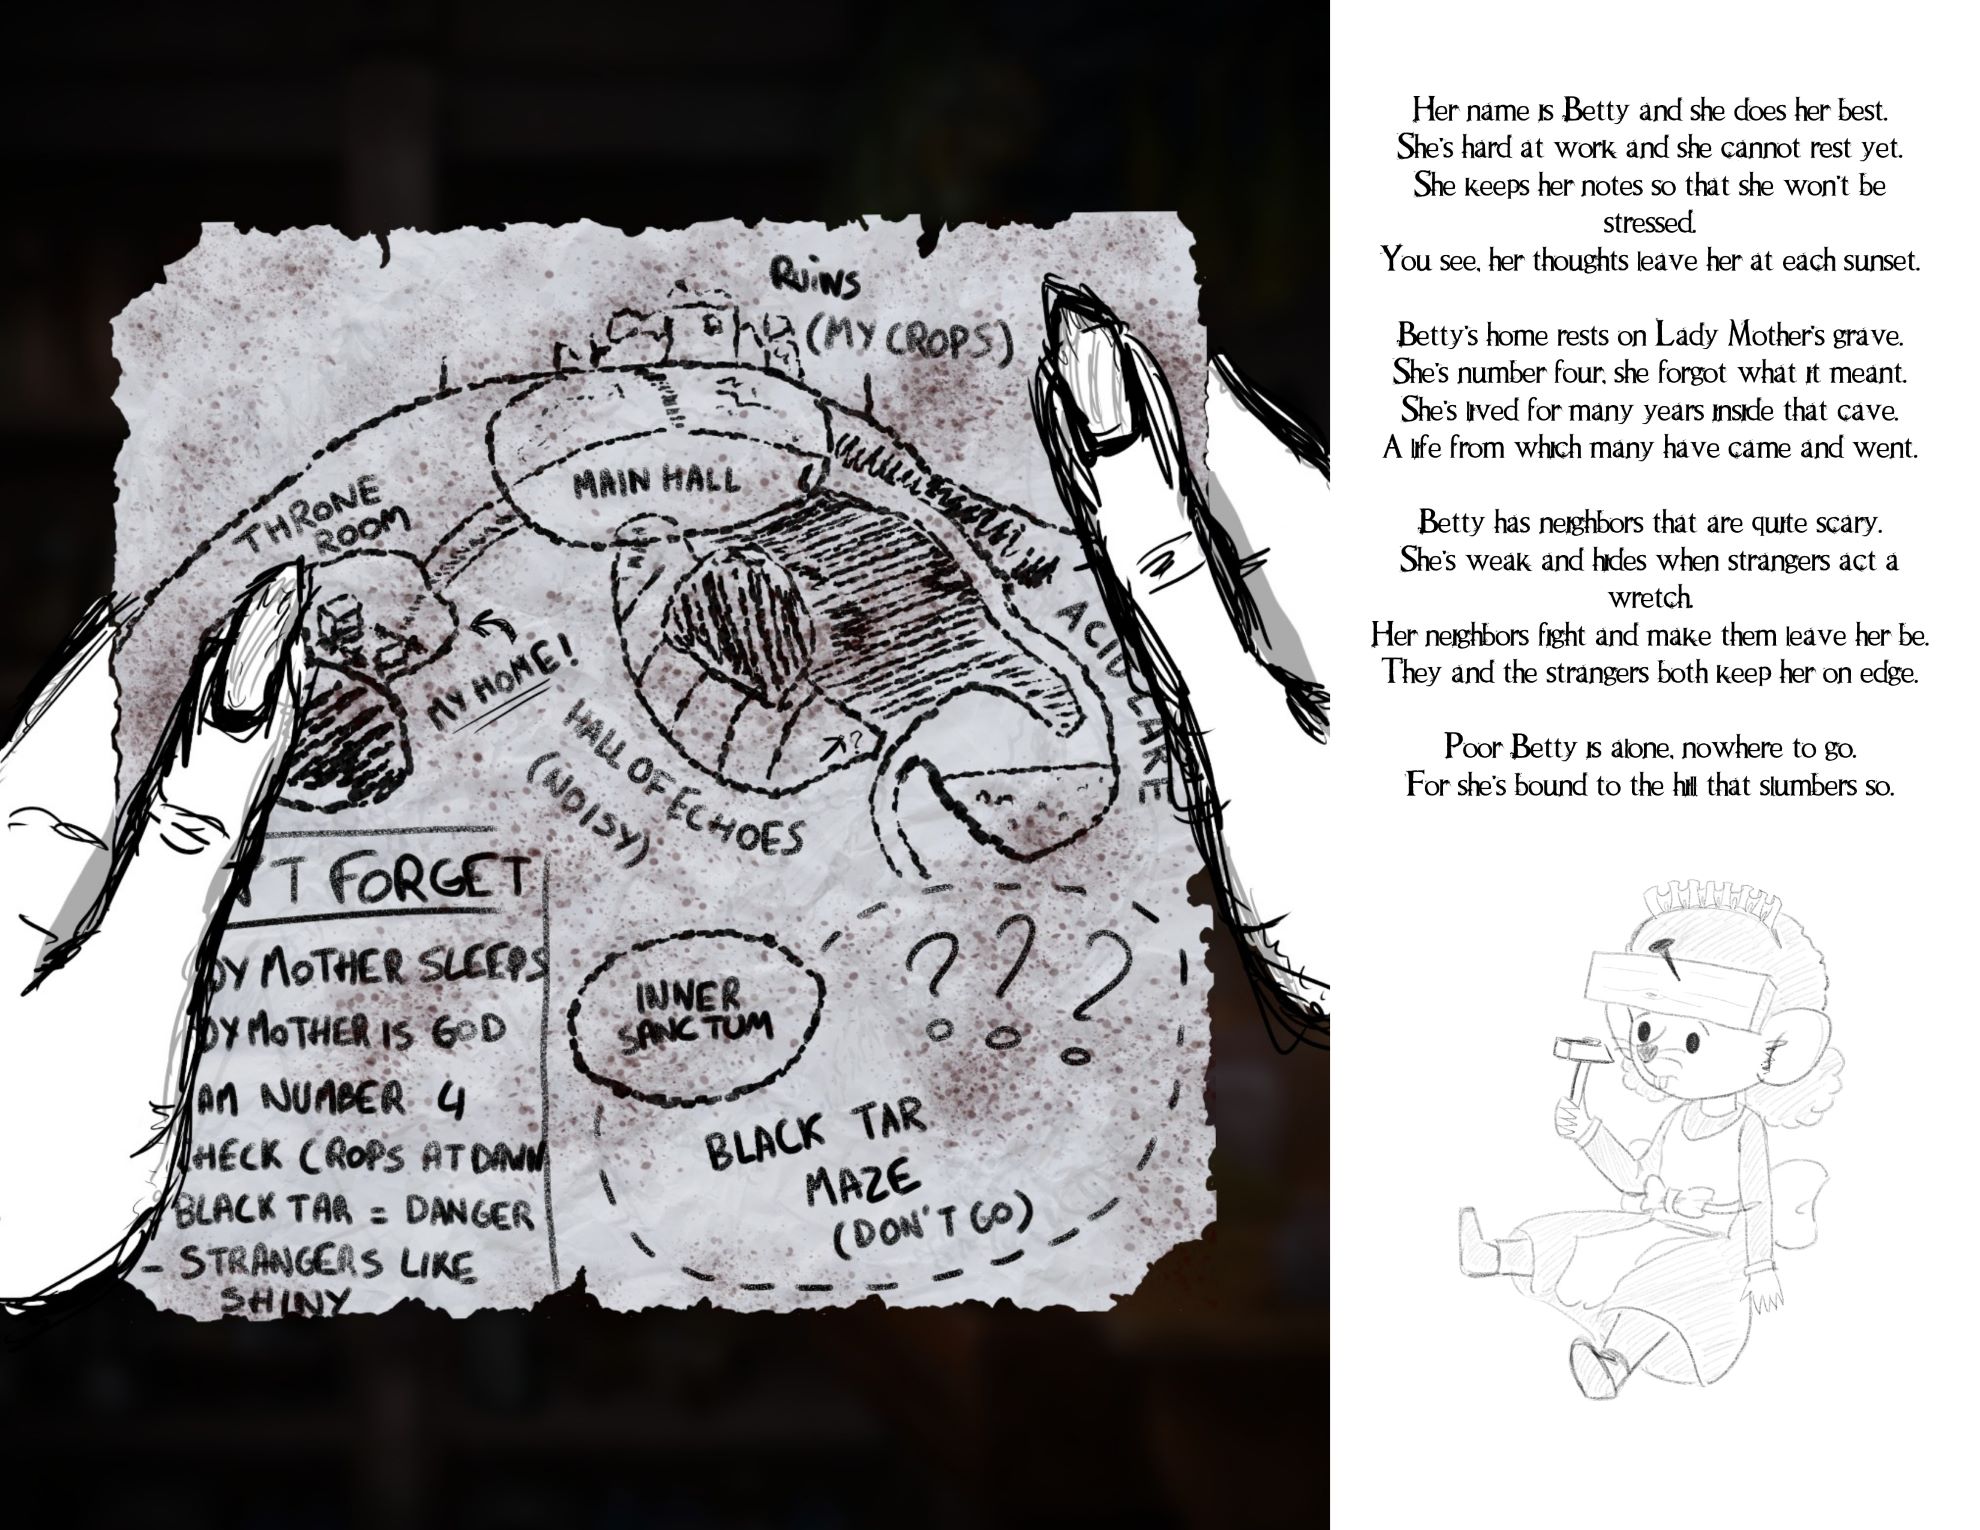 Ruins
(MY CROPS)
MAIN HALL
THRONE
ROOM
MY HOME!
ACID LAKE
HALL OF ECHOES
(NOISY)
?
'T FORGET
DY MOTHER SLEEPS
DY MOTHER IS GOD
AM NUMBER 4
HECK CROPS AT DAWN
BLACK TAR = DANGER
- STRANGERS LIKE
SHINY
INNER
SANCTUM
? ? ?
BLACK TAR
MAZE
(DON'T GO)
Her name is Betty and she does her best.
She's hard at work and she cannot rest yet.
She keeps her notes so that she won't be
stressed.
You see, her thoughts leave her at each sunset.
Betty's home rests on Lady Mother's grave.
She's number four, she forgot what it meant.
She's lived for many years inside that cave.
A life from which many have came and went.
Betty has neighbors that are quite scary.
She's weak and hides when strangers act a
wretch.
Her neighbors fight and make them leave her be.
They and the strangers both keep her on edge.
Poor Betty is alone, nowhere to go.
For she's bound to the hill that slumbers so.